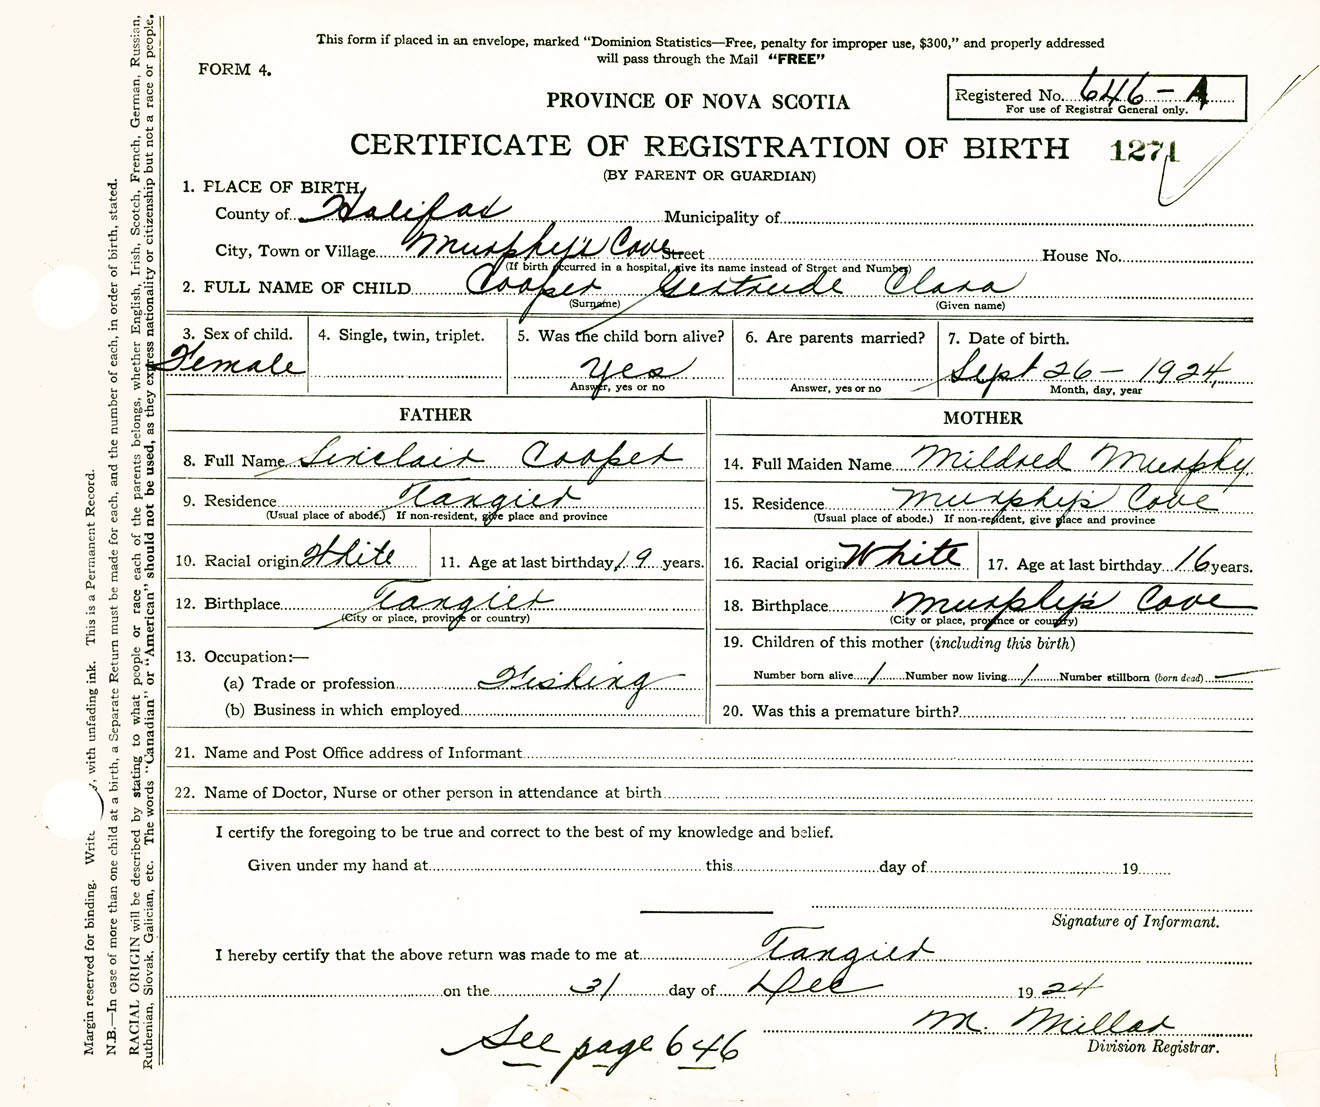 This form if placed in an envelope, marked “Dominion Statistics—Free, penalty for improper use, $300,” and properly addressed
will pass through the Mail “FREE”
FORM 4.
Registered No. 646-A
For use of Registrar General only.
PROVINCE OF NOVA SCOTIA
CERTIFICATE OF REGISTRATION OF BIRTH 1271
(BY PARENT OR GUARDIAN)
1. PLACE OF BIRTH,
County of Halifax Municipality of
City, Town or Village Murphy's Cove Street House No.
(If birth occurred in a hospital, give its name instead of Street and Number)
2. FULL NAME OF CHILD Cooper Gertrude Clara
(Surname) (Given name)
3. Sex of child. 4. Single, twin, triplet. 5. Was the child born alive? 6. Are parents married? 7. Date of birth.
Female Yes Sept 26 - 1924
Answer, yes or no Answer, yes or no Month, day, year
FATHER MOTHER
8. Full Name Sinclair Cooper 14. Full Maiden Name Mildred Murphy
9. Residence Tangier 15. Residence Murphy's Cove
(Usual place of abode.) If non-resident, give place and province (Usual place of abode.) If non-resident, give place and province
10. Racial origin White 11. Age at last birthday 19 years. 16. Racial origin White 17. Age at last birthday 16 years.
12. Birthplace Tangier 18. Birthplace Murphy's Cove
(City or place, province or country) (City or place, province or country)
13. Occupation:— 19. Children of this mother (including this birth)
(a) Trade or profession Fishing Number born alive 1 Number now living 1 Number stillborn (born dead) —
(b) Business in which employed 20. Was this a premature birth?
21. Name and Post Office address of Informant
22. Name of Doctor, Nurse or other person in attendance at birth
I certify the foregoing to be true and correct to the best of my knowledge and belief.
Given under my hand at this day of 19
Signature of Informant.
I hereby certify that the above return was made to me at Tangier
on the 31 day of Dec 1924
M. Millar
Division Registrar.
See page 646
Margin reserved for binding. Write , with unfading ink. This is a Permanent Record.
N.B.—In case of more than one child at a birth, a Separate Return must be made for each, and the number of each, in order of birth, stated.
RACIAL ORIGIN will be described by stating to what people or race each of the parents belongs, whether English, Irish, Scotch, French, German, Russian,
Ruthenian, Slovak, Galician, etc. The words “Canadian” or “American” should not be used, as they express nationality or citizenship but not a race or people.